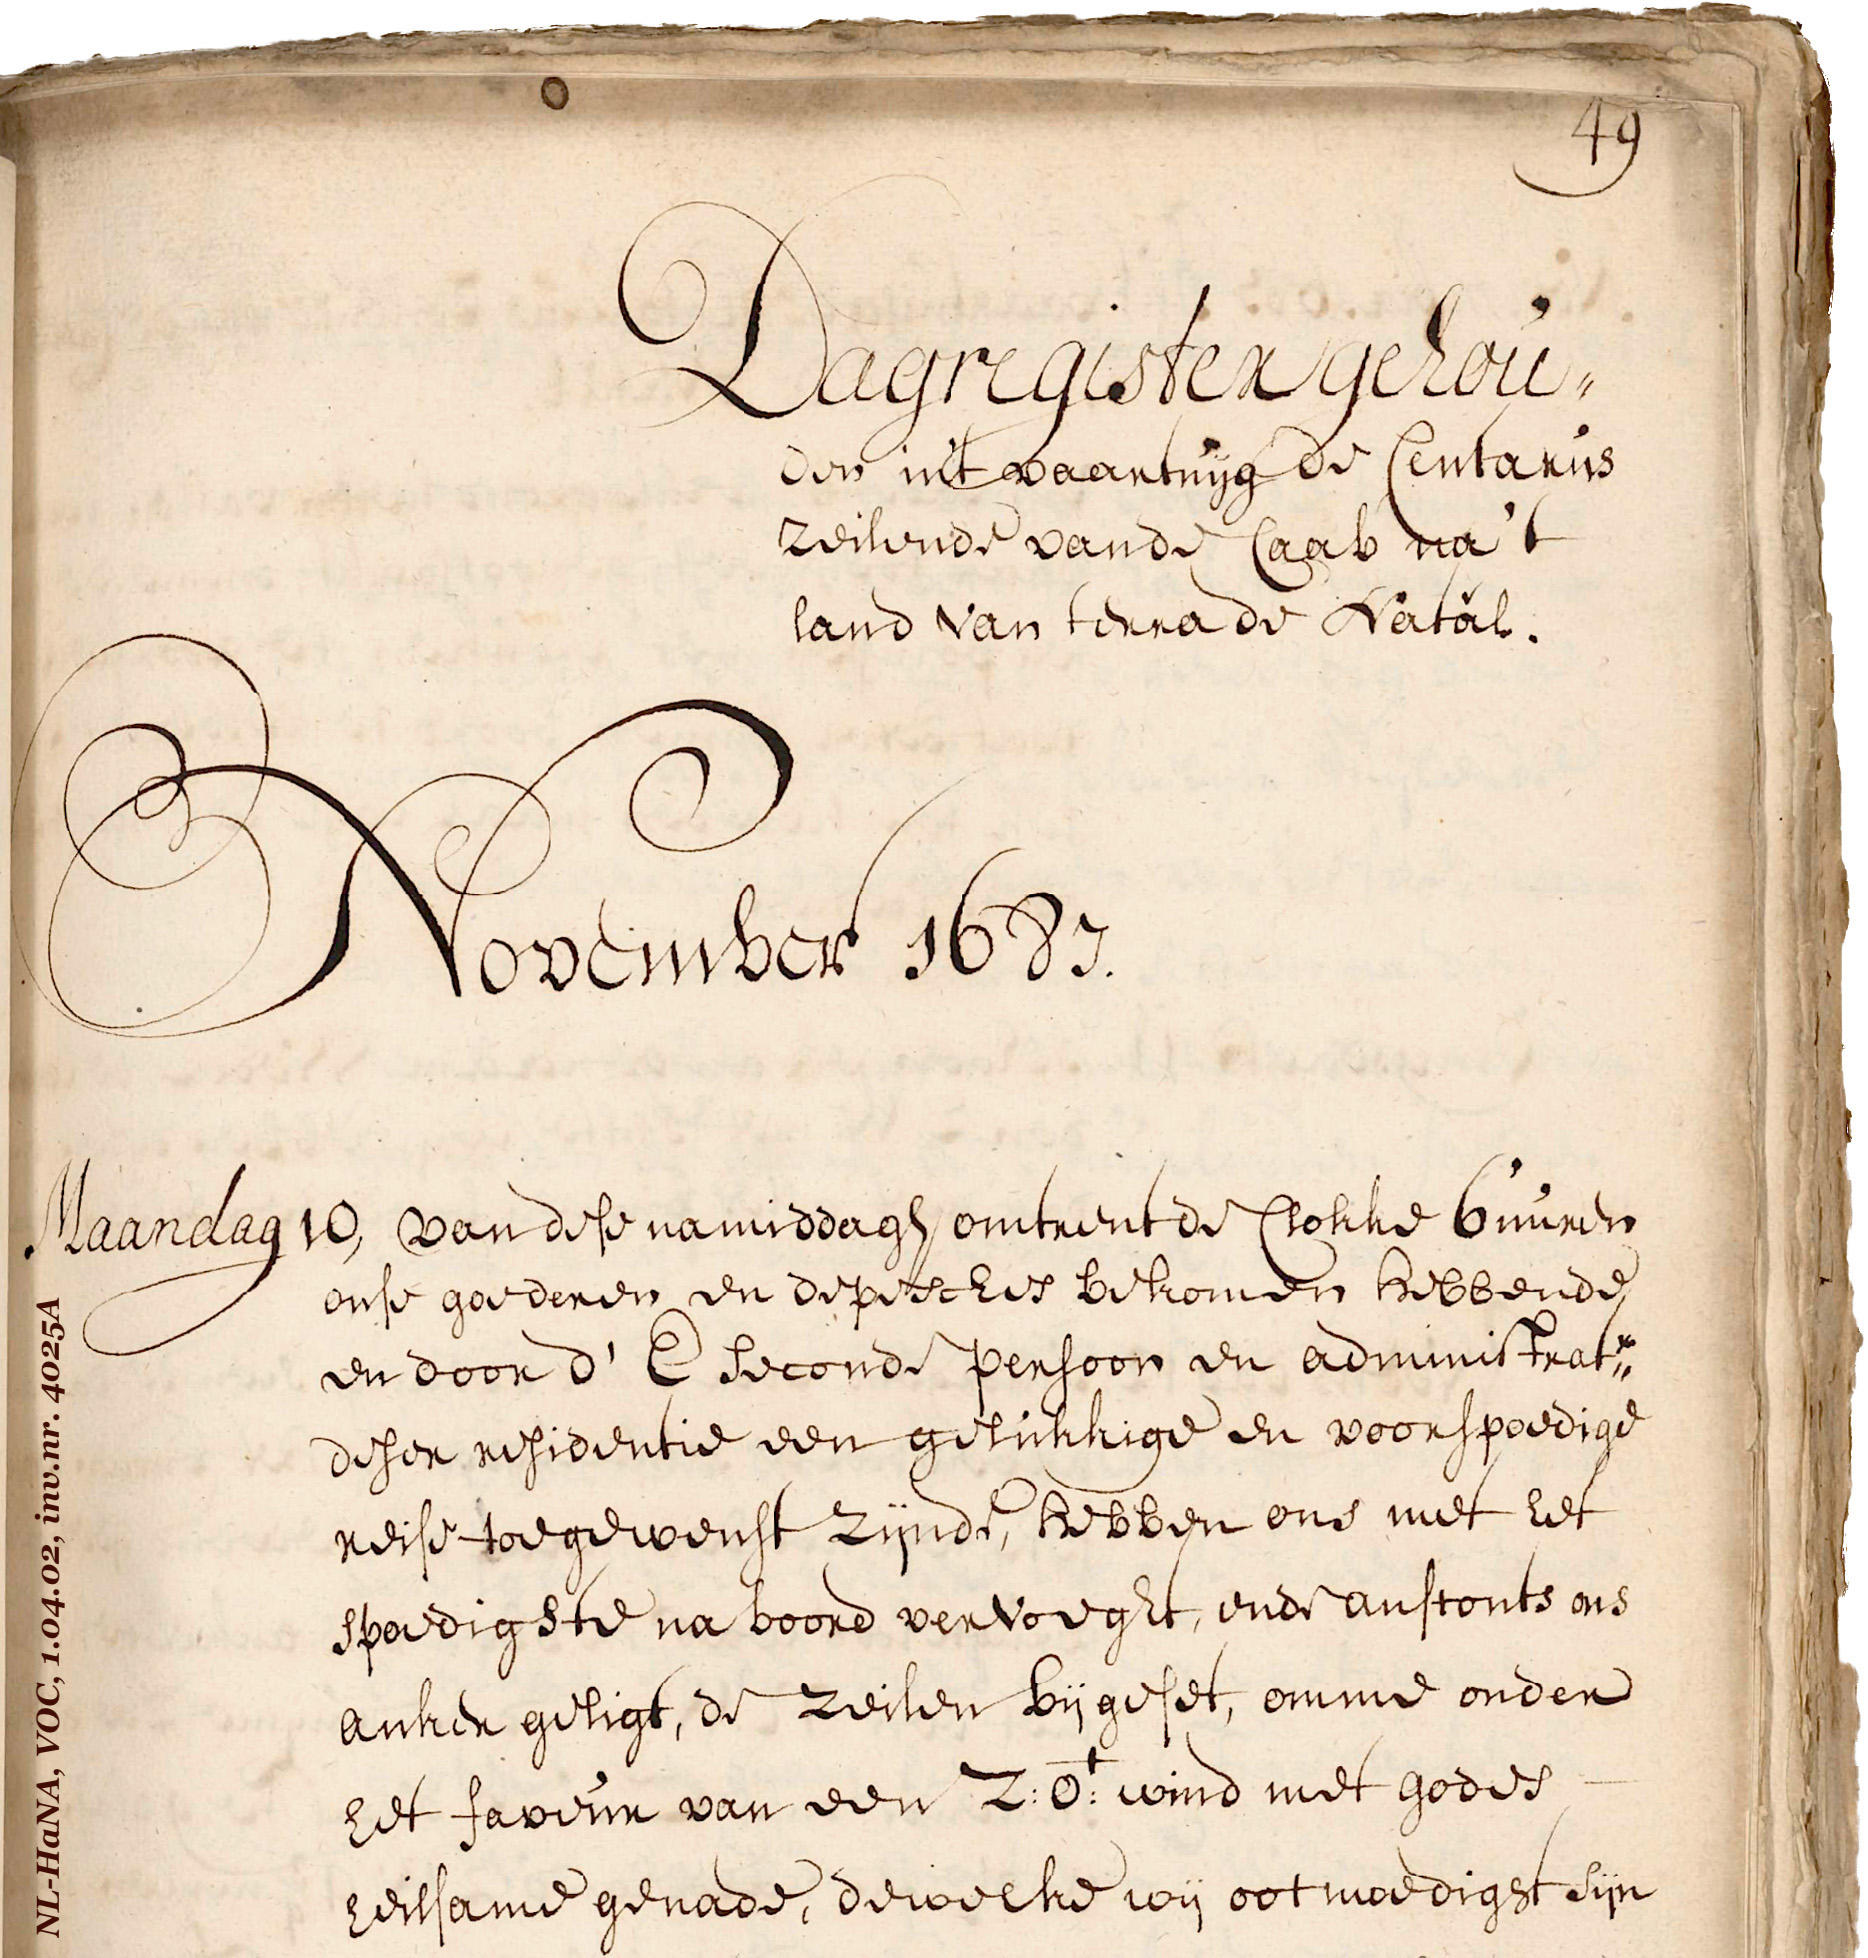 49
Dagregister gehou„
den in't vaartuijg de Centarus
zeilende vande Caab na't
land van terra de Natal.
November 1687.
Maandag 10, van dese namiddagh omtrent de Clokke 6 uuren
onse goederen en depesches bekomen hebbende,
en door d' E seconde persoon en administratr:
deser residentie een gelukkige en voorspoedige
reise toegewenst zijnde, hebben ons met het
spoedigste na boord vervoeght, ende anstonts ons
anker geligt, de zeilen bij geset, omme onder
het faveur van een Z:Ot: wind met godes
heilsame genade, dewelke wij ootmoedighst sijn
NL-HaNA, VOC, 1.04.02, inv.nr. 4025A